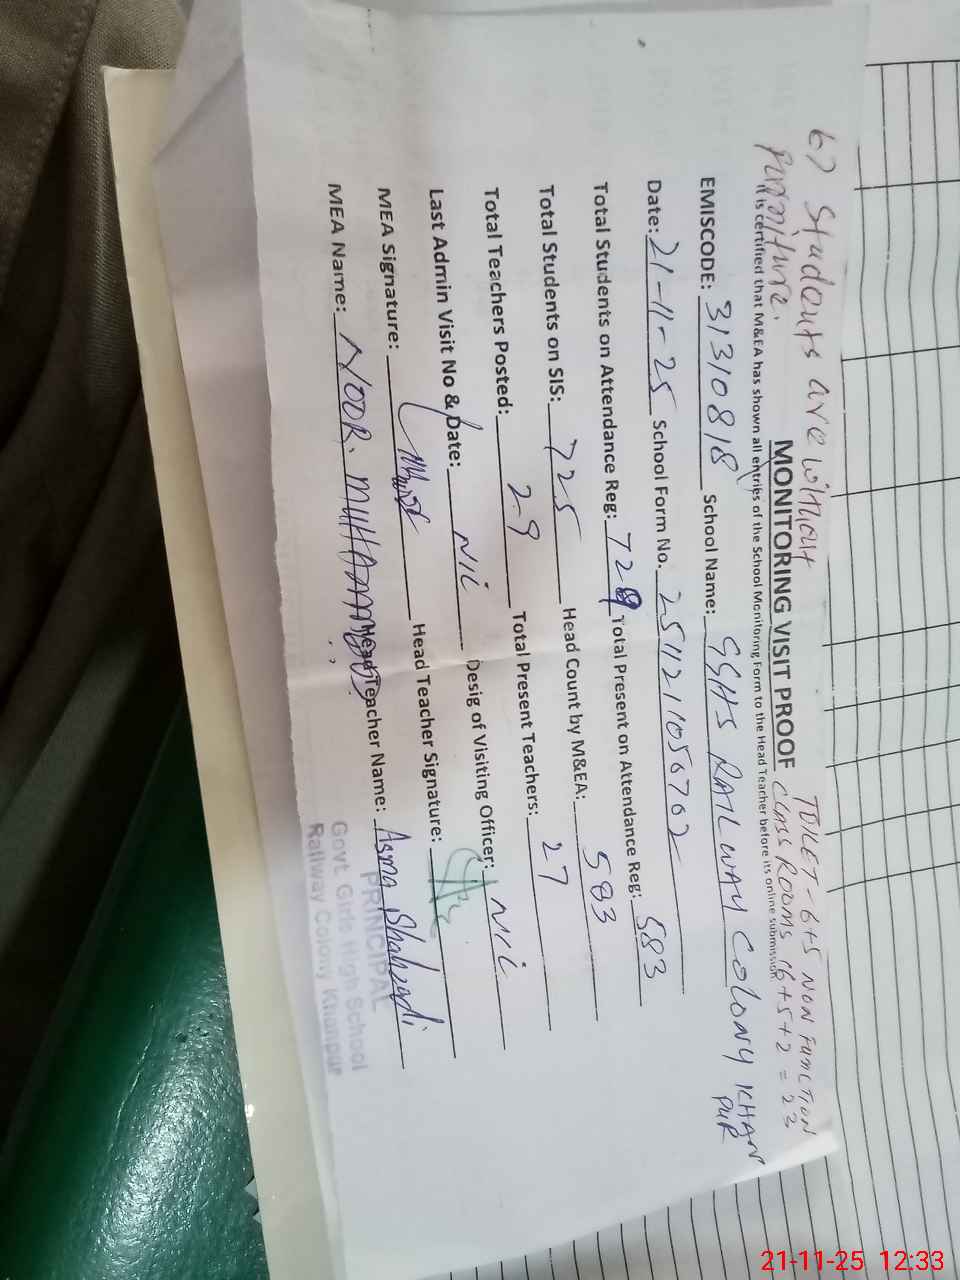 67 Students are without
furniture.
TOILET - 6+5 NON FUNCTION
CLASS ROOMS 16+5+2 = 23
MONITORING VISIT PROOF
It is certified that M&EA has shown all entries of the School Monitoring Form to the Head Teacher before its online submission
EMISCODE: 31310818 School Name: GGHS RAILWAY COLONY KHAN PUR
Date: 21-11-25 School Form No. 2511211056702
Total Students on Attendance Reg: 729 Total Present on Attendance Reg: 583
Total Students on SIS: 725 Head Count by M&EA: 583
Total Teachers Posted: 29 Total Present Teachers: 27
Last Admin Visit No & Date: NIL Desig of Visiting Officer: NIL
MEA Signature: Head Teacher Signature:
MEA Name: NOOR MUHAMMAD Head Teacher Name: Asma Shaheedi
PRINCIPAL
Govt. Girls High School
Railway Colony Khanpur
21-11-25 12:33